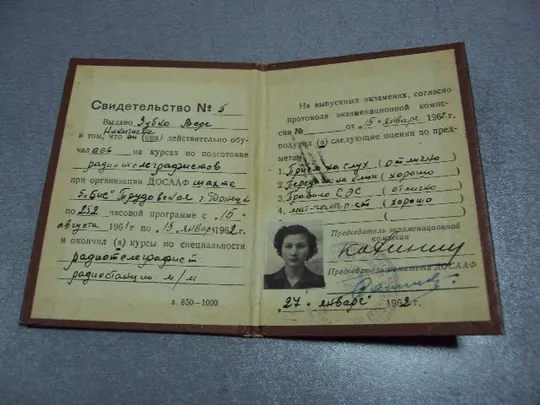 Свидетельство № 5
Выдано Зубко Вере
Никитичне
в том, что он (она) действительно обу-
чалась на курсах по подготовке
радиотелеграфистов
при организации ДОСААФ шахте
5-бис Трудовская г. Донецк
по 252 часовой программе с „15“
августа 1961 г по „15“ января 1962 г.
и окончил (а) курсы по специальности
радиотелеграфист
радиостанции м/м
з. 650—1000.
На выпускных экзаменах, согласно
протокола экзаменационной комис-
сии № от „15“ января 1962 г.
получил (а) следующие оценки по пред-
метам:
1. Приём на слух (отлично)
2. Передача на ключе (хорошо)
3. Правила СЭС (отлично)
4. (хорошо)
Председатель экзаменационной
комиссии
Председатель комитета ДОСААФ
„27“ января 1962 г.